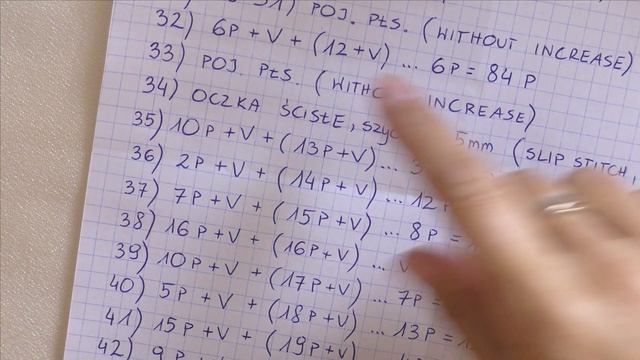 31) POJ. PŁS. (WITHOUT INCREASE)
32) 6P + V + (12+V) ... 6P = 84 P
33) POJ. PŁS. (WITHO INCREASE)
34) OCZKA ŚCISŁE, SZY 5mm (SLIP STITCH,
35) 10P + V + (13P+V)... 3
36) 2P + V + (14P + V) ... 12P
37) 7P + V + (15P+V) ... 8P =
38) 16P + V + (16P+V) ... V
39) 10P + V + (17P+V) ... 7P =
40) 5P + V + (18P+V) ... 13P = 1
41) 15P + V + (19P+V) ...
42) 9P